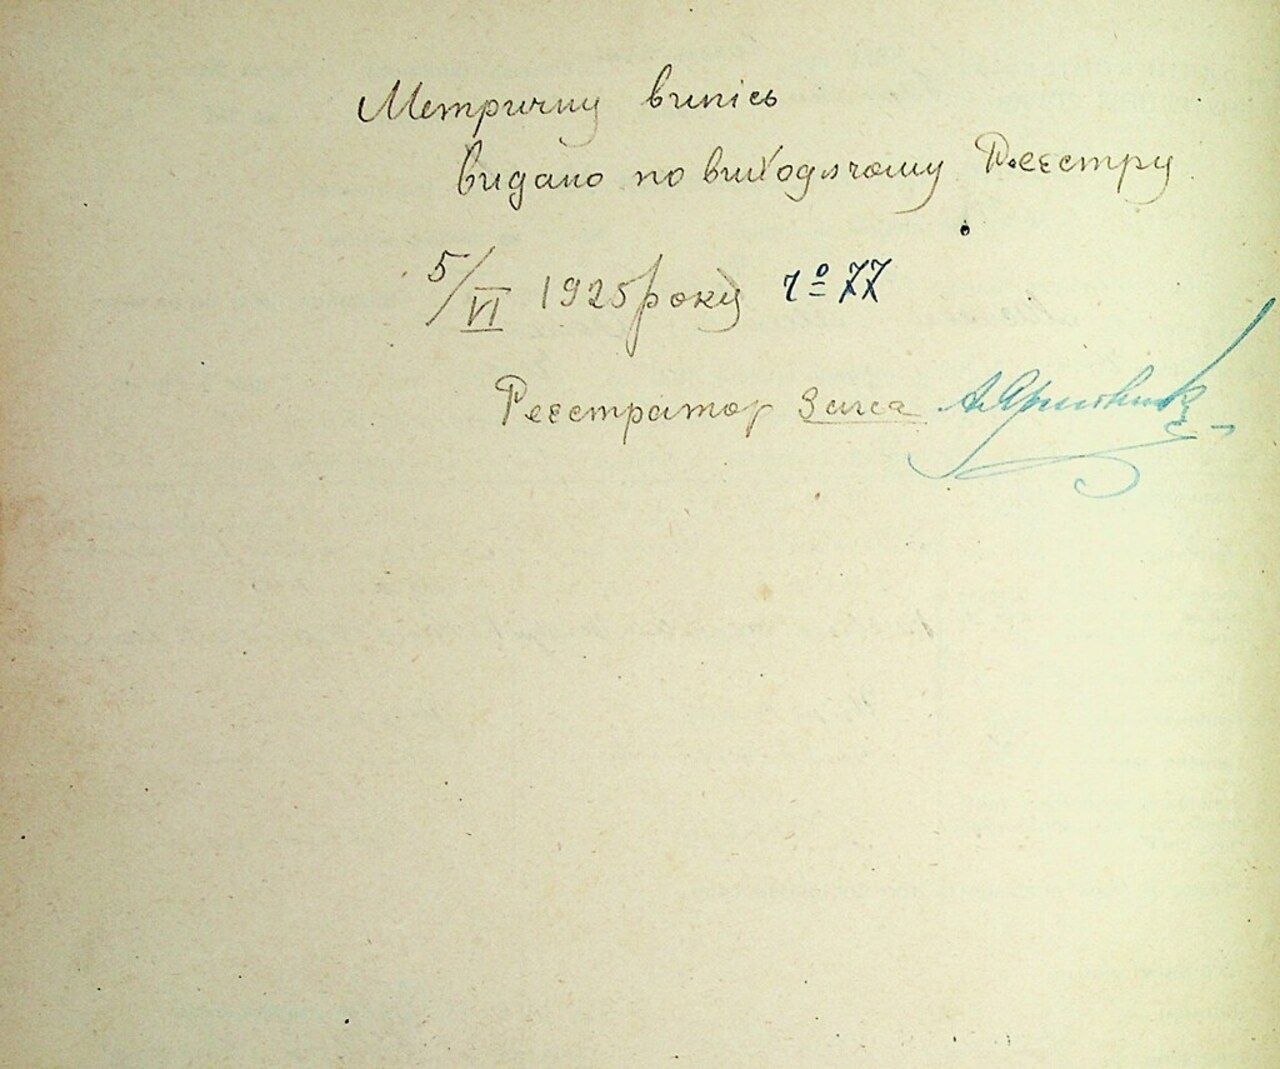 Метричну випісь
видано по виходячому Реєстру
5/VI 1925 року ч⁰ 77
Реєстратор Загса